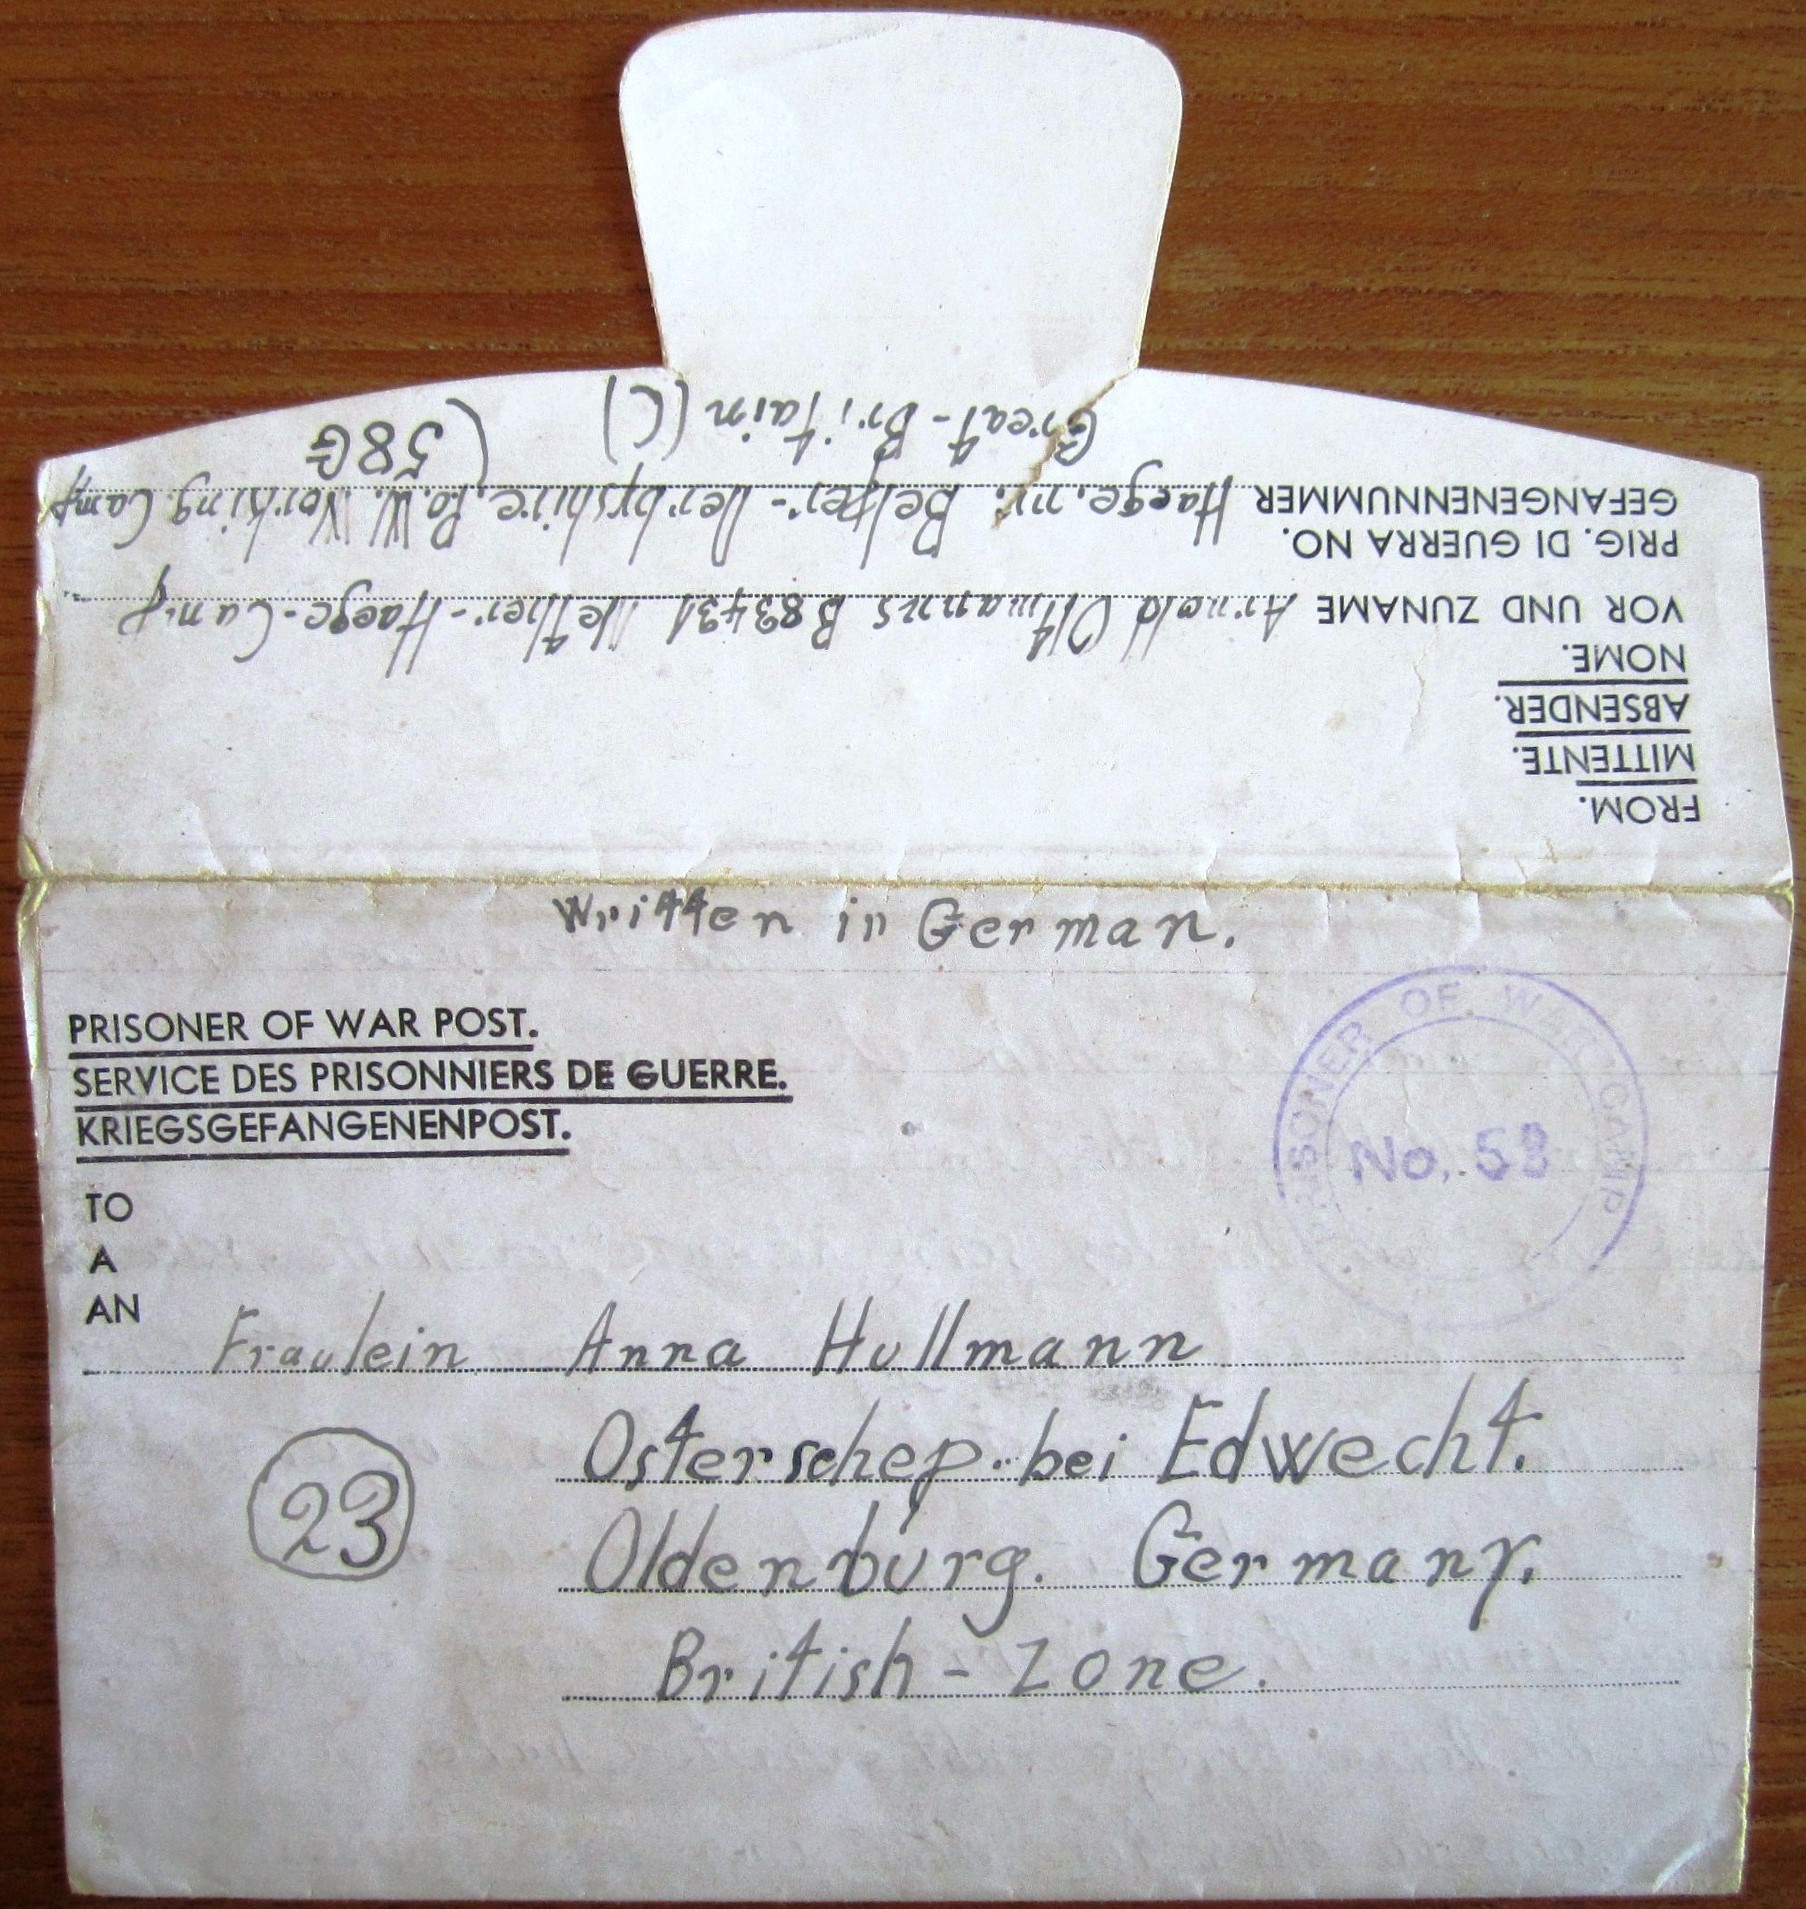 FROM.
MITTENTE.
ABSENDER.
NOME.
VOR UND ZUNAME Arnold Oltmanns B83431 Nether-Haege-Camp
PRIG. DI GUERRA NO.
GEFANGENENNUMMER Haege, nr. Belper-Derbyshire, P.o.W. Working Camp
Great-Britain (C) (58G
Written in German.
PRISONER OF WAR POST.
SERVICE DES PRISONNIERS DE GUERRE.
KRIEGSGEFANGENENPOST.
PRISONER OF WAR CAMP
No. 58
TO
A
AN
Fraulein Anna Hullmann
Osterschep. bei Edwecht.
23
Oldenburg. Germany.
British - Zone.